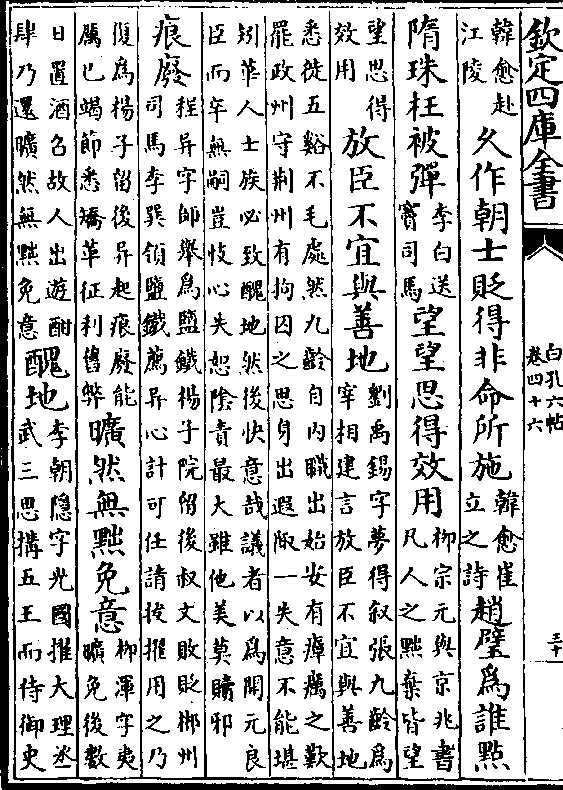 欽定四庫全書
白孔六帖
卷四十六
韓愈赴
江陵
久作朝士貶得非命所施
韓愈崔
立之詩
趙璧為誰點
隋珠枉被彈
李白送
竇司馬
望望思得效用
柳宗元與京兆書
凡人之黜棄皆望
望思得
效用
放臣不宜與善地
劉禹錫字夢得叙張九齡為
宰相建言放臣不宜與善地
悉徙五谿不毛處然九齡自内職出始安有瘴癘之歎
罷政州守荆州有拘囚之思身出遐陬一失意不能堪
矧華人士族必致醜地然後快意哉議者以為開元良
臣而卒無嗣豈忮心失恕陰責最大雖他美莫贖邪
痕廢
程异字師舉為鹽鐵楊子院留後叔文敗貶郴州
司馬李巽領鹽鐵薦异心計可任請拔擢用之乃
復為楊子留後异起痕廢能
厲已竭節悉矯革征利舊弊
曠然無黜免意
柳渾字夷
曠免後數
日置酒召故人出遊酣
肆乃還曠然無黜免意
醜地
李朝隱字光國擢大理丞
武三思搆五王而侍御史